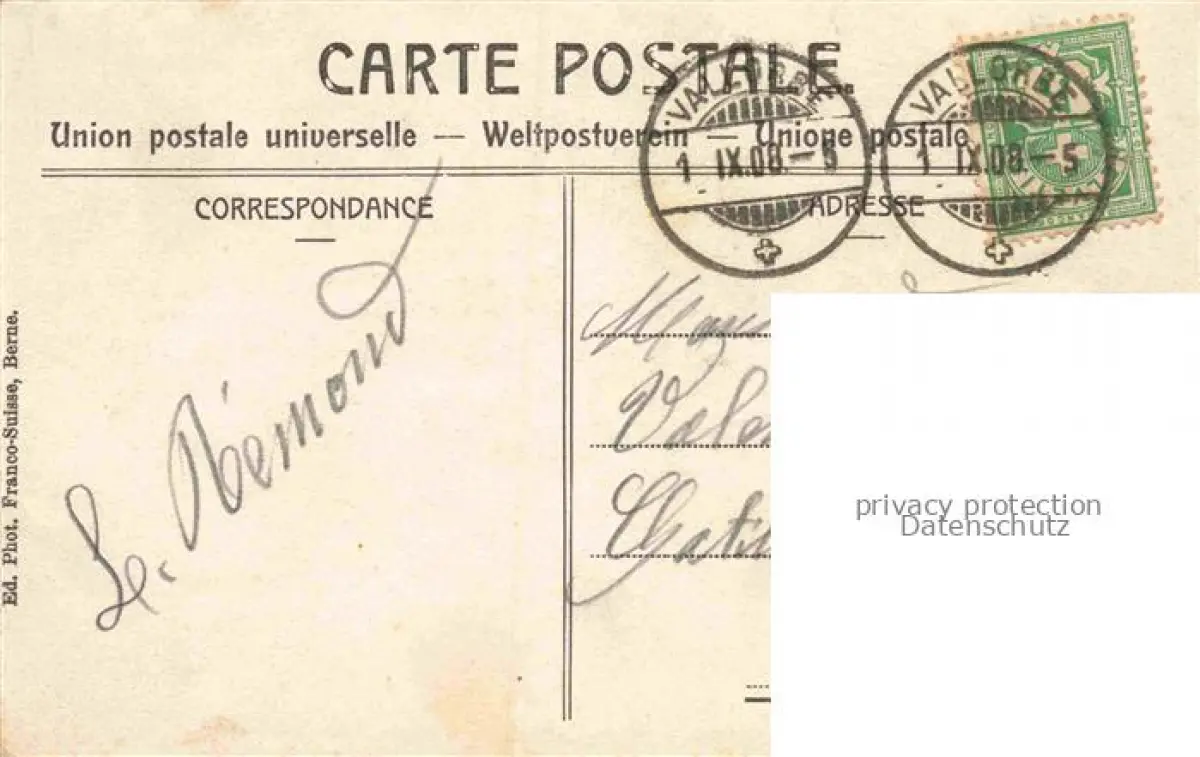 CARTE POSTALE.
Union postale universelle — Weltpostverein — Unione postale
VALLORBE
1 IX.08.–5
VALLORBE
1 IX.08.–5
CORRESPONDANCE
ADRESSE
Rémond
privacy protection
Datenschutz
Ed. Phot. Franco-Suisse, Berne.